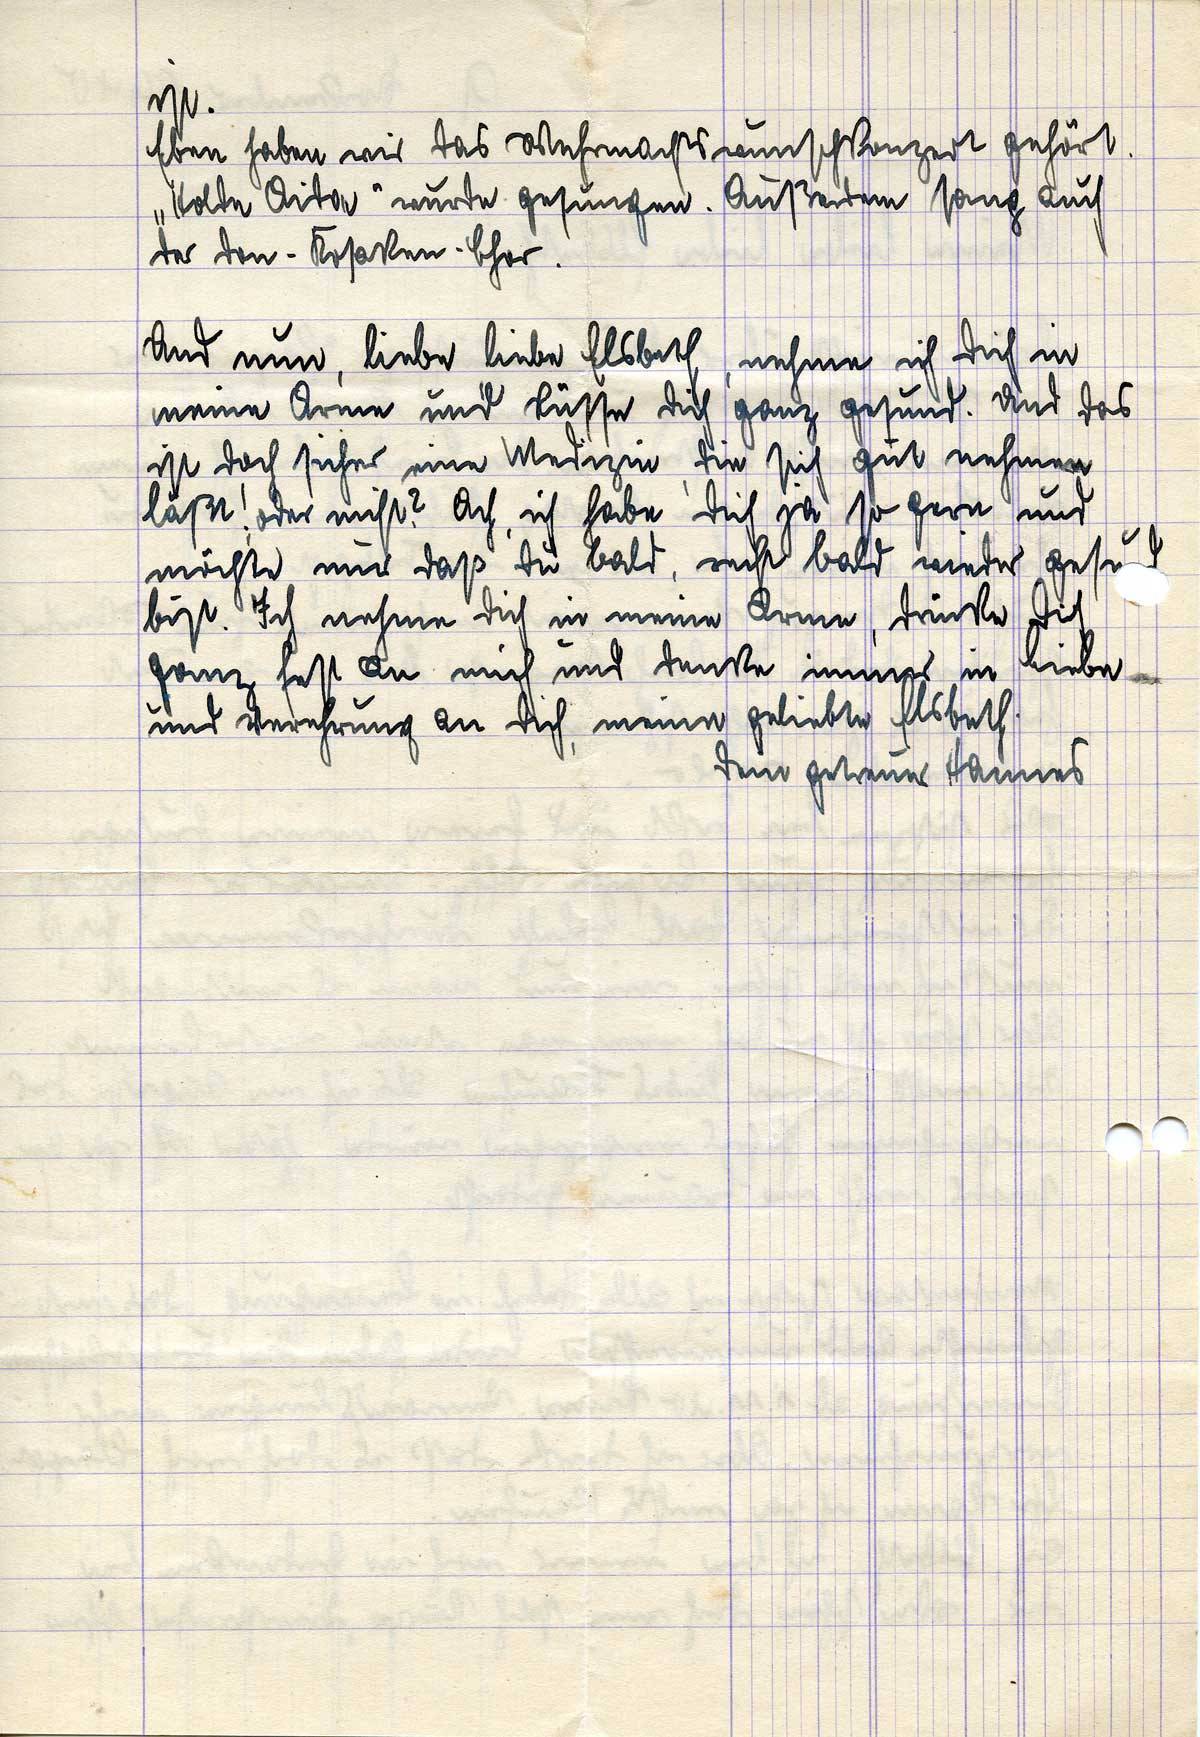 ist.
Eben haben wir das Wehrmachtswunschkonzert gehört.
„Holde Aida" wurde gesungen. Außerdem sang auch
der Don-Kosaken-Chor.
Und nun, liebe liebe Elsbeth, nehme ich Dich in
meine Arme und küsse Dich ganz gesund. Und das
ist doch sicher eine Medizin, die sich gut nehmen
läßt! oder nicht? Ach, ich habe Dich ja so gern und
möchte nur daß Du bald, recht bald wieder gesund
bist. Ich nehme Dich in meine Arme, drücke Dich
ganz fest an mich und denke immer in Liebe
und Verehrung an Dich, meine geliebte Elsbeth.
Dein getreuer Hannes